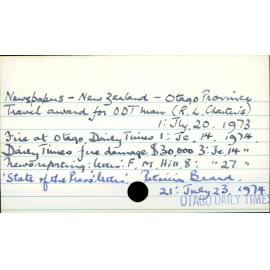 Newspapers - New Zealand - Otago Province
Travel award for ODT man (R. L. Charteris)
1: Jly. 20. 1973
Fire at Otago Daily Times 1: Je. 14. 1974
Daily Times fire damage $30,000 3: Je 14 "
News reporting: letter: F. M. Hill 8: " 27 "
'State of the Press' letter. Patricia Beard.
21: July 23, 1974
OTAGO DAILY TIMES